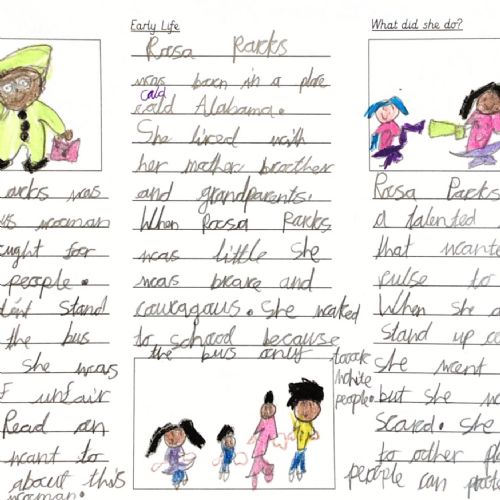 arks was
ts woman
ught for
people.
dent stand
the bus
She was
F unfair
Read on
want to
about this
woman.
Early Life
Rosa Parks
was born in a place
cald
cald Alabama.
She lived with
her mother brother
and grandparents.
When Roosa Parks
was little she
was brave and
couragaus. She walked
to school because
the bus only toook
white
people.
What did she do?
Rosa Parks
a talented
that wante
rulse to
When she
stand up co
she went
but she w
scared. She
to other pla
people can